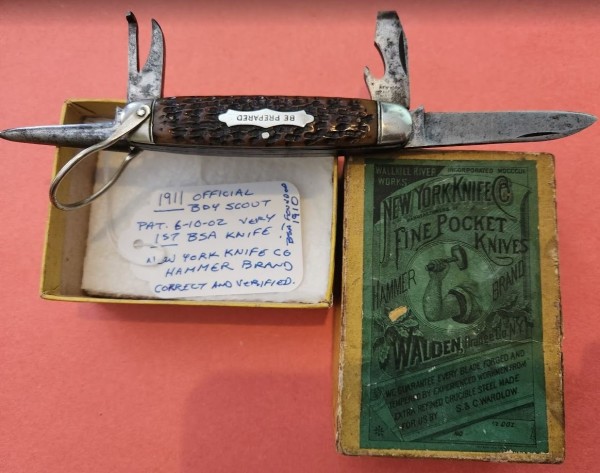 BE PREPARED
1911 OFFICIAL
BOY SCOUT
PAT. 6-10-02 VERY
1ST BSA KNIFE
NEW YORK KNIFE CO
HAMMER BRAND
CORRECT AND VERIFIED.
BSA FOUNDED
1910
WALLKILL RIVER
WORKS
INCORPORATED
NEW YORK KNIFE CO.
FINE POCKET
KNIVES
HAMMER
BRAND
WALDEN,
WE GUARANTEE EVERY BLADE FORGED AND
TEMPERED BY EXPERIENCED WORKMEN FROM
EXTRA REFINED CRUCIBLE STEEL MADE
FOR US BY S. & C. WARDLOW